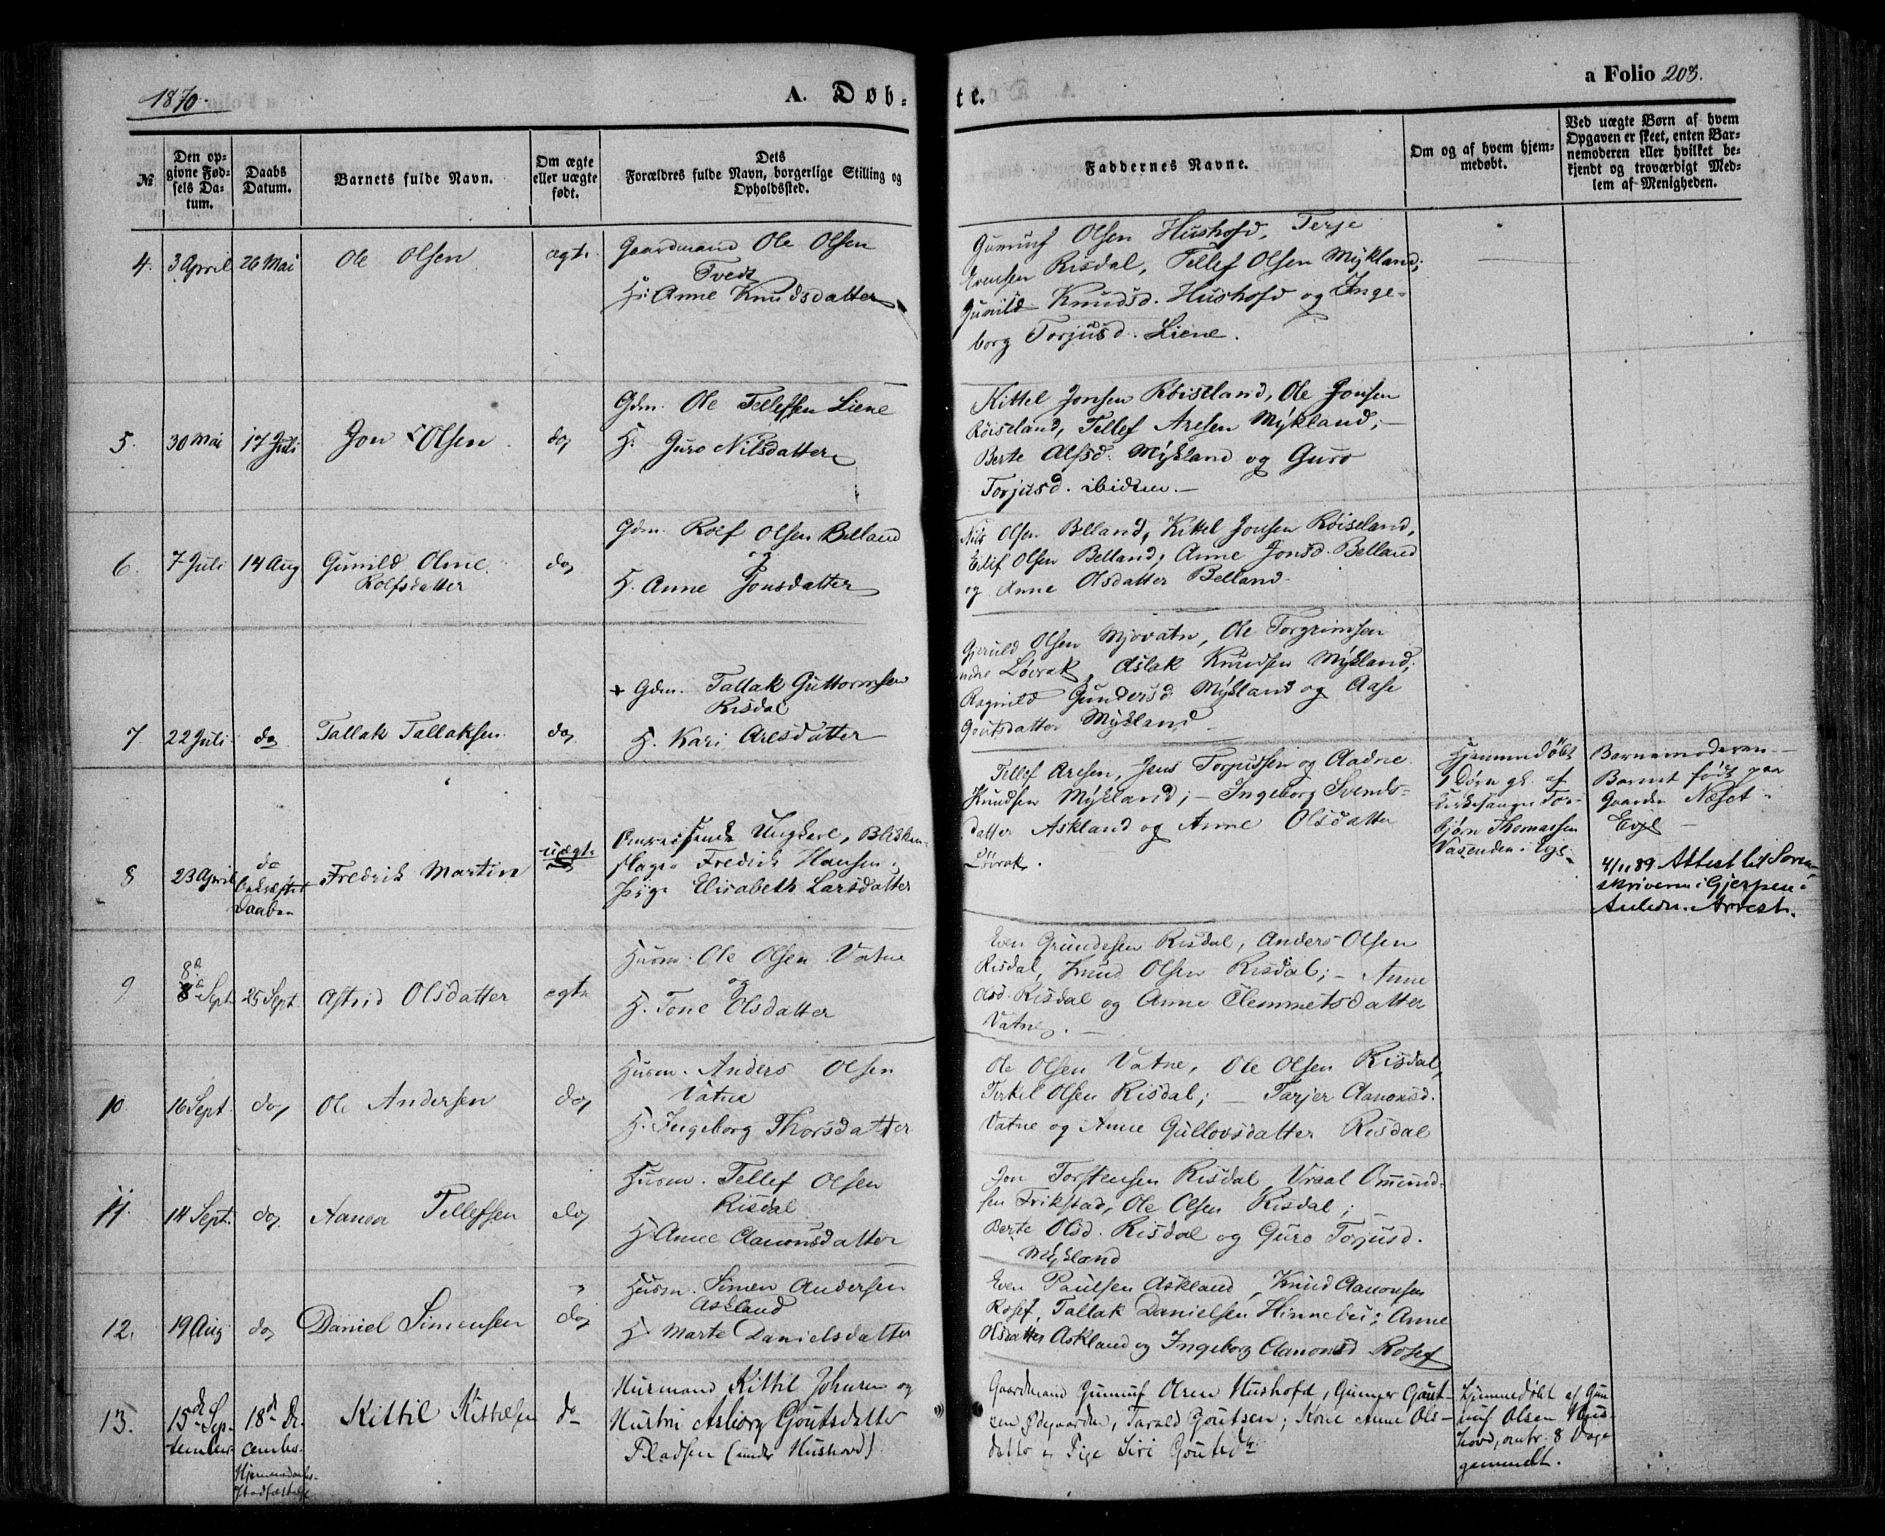 1870.
A. Døb-
te.
a Folio 203.
№
Den op-
givne Fød-
sels Da-
tum.
Daabs
Datum.
Barnets fulde Navn.
Om ægte
eller uægte
født.
Dets
Forældres fulde Navn, borgerlige Stilling og
Opholdssted.
Faddernes Navne.
Om og af hvem hjem-
medøbt.
Ved uægte Børn af hvem
Opgaven er skeet, enten Bar-
nemoderen eller hvilket be-
kjendt og troværdigt Med-
lem af Menigheden.
4. 3 April 26 Mai Ole Olsen ægte
Gaardmand Ole Olsen
Tvedt
H: Anne Knudsdatter
Gunnuf Olsen Hushofd, Terje
Evensen Risdal, Tellef Olsen Mykland;
Gunild Knudsd. Hushofd og Inge-
borg Torjusd. Liene.
5. 30 Mai 17 Juli Jon Olsen do
Gdm. Ole Tellefsen Liene
H. Guro Nilsdatter
Kittel Jonsen Røiseland, Ole Jonsen
Røiseland, Tellef Aresen Mykland;
Berte Alfsd. Mykland og Guro
Torjusd. ibidem.
6. 7 Juli 14 Aug Gunild Oline
Rolfsdatter
do
Gdm. Rolf Olsen Belland
og
H. Anne Jonsdatter
Nils Olsen Belland, Kittel Jonsen Røiseland,
Eilif Olsen Belland; Anne Jonsd. Belland
og Anne Olsdatter Belland.
7. 22 Juli do Tallak Tallaksen do
+ Gdm. Tallak Guttormsen
Risdal
H. Kari Aresdatter
Gjeruld Olsen Mjovatn, Ole Torgrimsen
Løvrak, Aslak Knudsen Mykland;
Ragnild Gundersd. Mykland og Aase
Goutsdatter Mykland.
8 23 April do
Daaben
Fredrik Martin uægte
Omreisende Ungkarl, Blikken-
slager Fredrik Hansen
Pige Elisabeth Larsdatter
Tellef Aresen, Jens Torjussen og Aadne
Knudsen Mykland; - Ingeborg Svends-
datter Askland og Anne Olsdatter
Løvrak.
Hjemmedøbt
1 Døgn gl. af
Kirkesanger Tor-
bjørn Thomassen
Vasenden i
Barnemoderen
Barnet født paa
Gaarden Næset i
Evje
4/11 89 Attest til Soren-
skriveren i Gjerpen i
Anledn. Arrest.
9 8de Sept. 25 Sept. Astrid Olsdatter ægte
Husm. Ole Olsen Vatne
og
H. Tone Olsdatter
Even Gundersen Risdal, Anders Olsen
Risdal, Knud Olsen Risdal; - Anne
Olsd. Risdal og Anne Clemmetsdatter
Vatne.
10 16 Sept. do Ole Andersen do
Husm. Anders Olsen
Vatne
H. Ingeborg Thorsdatter
Ole Olsen Vatne, Ole Olsen Risdal,
Terkel Olsen Risdal; - Tarjer Aanonsd.
Vatne og Anne Gullovsdatter Risdal
11. 14 Sept. do Aanon Tellefsen do
Husm. Tellef Olsen
Risdal
H. Anne Aanonsdatter
Jon Torstensen Risdal, Vraal Omund-
sen Frikstad, Ole Olsen Risdal;
Berte Olsd. Risdal og Guro Torjusd.
Mykland
12. 19 Aug do Daniel Simensen do
Husm. Simen Andersen
Askland
H. Marte Danielsdatter
Even Paulsen Askland, Knud Aanonsen
Rosef, Tallak Danielsen Hinnebu; Anne
Olsdatter Askland og Ingeborg Aanonsd Rosef
13. 15de Sep-
tember
18de De-
cember
Hjemmedaabs-
stadfæstelse
Kittil Kittilsen do
Husmand Kittil Johnsen og
Hustru Asborg Goutsdatter
Fladsen (under Hushovd)
Gaardmand Gunnuf Olsen Hushofd, Gunner Gout-
sen Ødegaarden, Tarald Goutsen; Kone Anne Ols-
datter og Pige Siri Goutsdtr
Hjemmedøbt af Gun-
nuf Olsen Hus-
hovd, omtr. 8 Dage
gammelt.